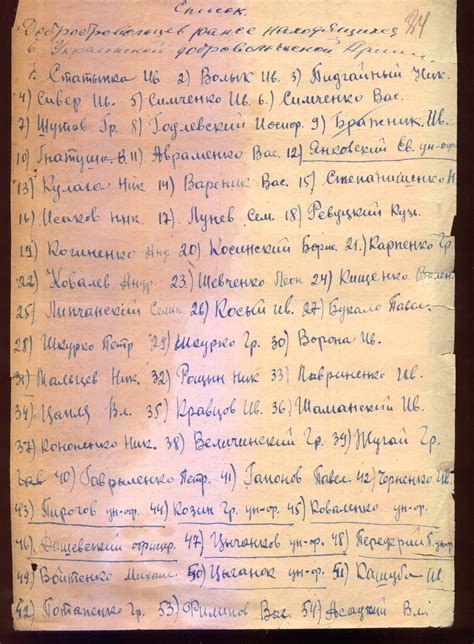 Список
Добровольцев ранее находящихся 84
в Украинской добровольческой Армии
1. Статыпка Ив. 2) Волык Ив. 3) Пидгайный Ник.
4) Сивер Ив. 5) Симченко Ив. 6.) Симченко Вас.
7) Шутов Гр. 8) Годлевский Иосиф. 9) Браженик. Ив.
10) Гнатуша 11) Авраменко Вас. 12) Янковский Ев. ун-оф.
13) Кулага Ник 14) Вареник Вас. 15) Степанищенко Н
16) Исаков 17. Лунев Сем. 18) Ревуцкий Кузь.
19) Когиненко Анд. 20) Косинский Борис. 21.) Карпенко Гр.
22) Ковалев Андр. 23) Шевченко Леон. 24) Кищенко
25) Липчанский Семен. 26) Косый Ив. 27) Букало Павел.
28) Шкурко Петр 29) Шкурко Гр. 30) Ворона Ив.
31) Мальцев Ник. 32) Рощин Ник 33) Лавриненко Ив.
34) Цапля Вл. 35) Кравцов Ив. 36) Шаманский Ив.
37) Кононенко Ник. 38) Величинский Гр. 39) Шугай Гр.
40) Гаврыленко Петр. 41) Гапонов Павел. 42) Черненко Ив.
43) Пирогов ун-оф. 44) Козин Гр. ун-оф. 45) Коваленко ун-оф.
46) Дашевский офицер. 47) Цычанков ун-оф. 48) Передерий
49) Войтенко Михаил. 50) Цыганок ун-оф. 51) Кашуба Ив.
52) Потапенко Гр. 53) Филипов Вас. 54) Асацкий Вл.